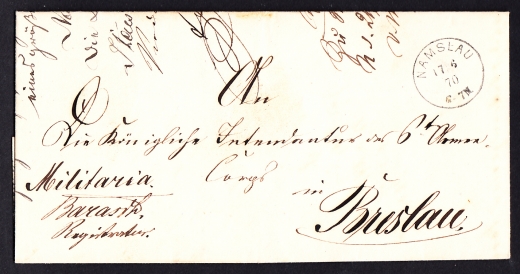 NAMSLAU
17 6
70
6-7N
An
Die Königliche Intendantur des 6ten Armee-
Corps
in
Breslau.
Militaria.
Registrator.
eines
Die